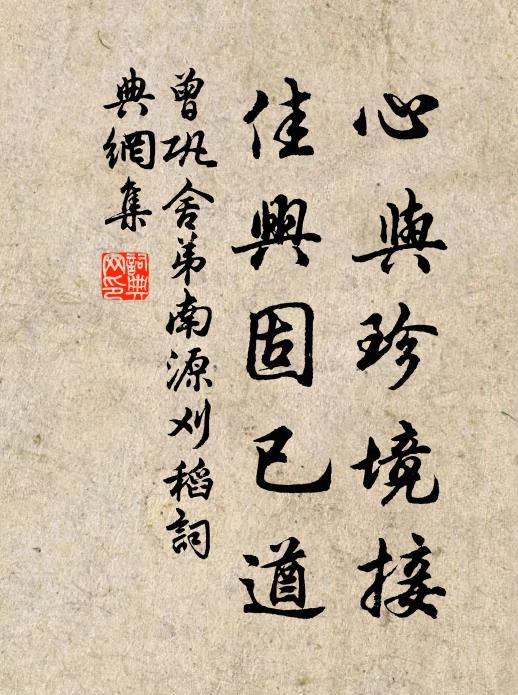 心與珍境接
佳興固已遒
曾巩舍弟南源刈稻詞
典網集
詞典網印